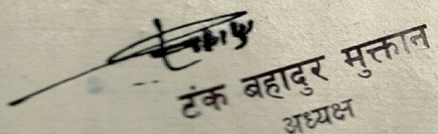 टंक बहादुर मुक्तान
अध्यक्ष